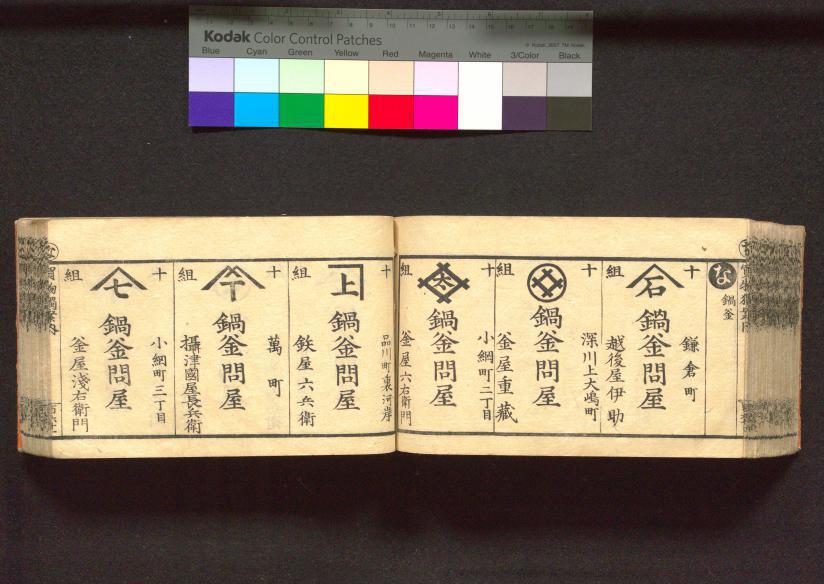 Kodak Color Control Patches
© Kodak, 2007 TM: Kodak
Blue Cyan Green Yellow Red Magenta White 3/Color Black
な
鍋釜
十組
石
鎌倉町
鍋釜問屋
越後屋伊助
十組
深川上大嶋町
鍋釜問屋
釜屋重藏
十組
太
小網町二丁目
鍋釜問屋
釜屋六右衛門
十組
上
品川町裏河岸
鍋釜問屋
鉄屋六兵衛
十組
萬町
鍋釜問屋
攝津國屋長兵衛
十組
七
小網町三丁目
鍋釜問屋
釜屋淺右衛門